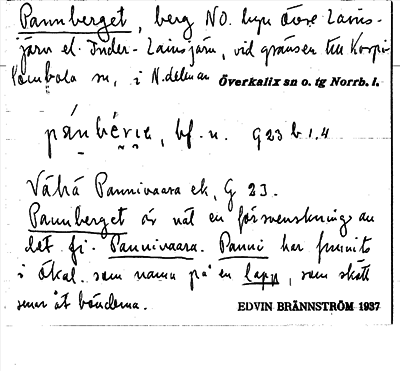 Pannberget, berg NO. hyn Övre-Lains-
järn el. Inder-Lainsjärn, vid gränsen till Korpi-
lombolo sn, i N.delen av Överkalix sn o. tg Norrb. l.
bf. n. G 23 b 1.4
Vähä Pannivaara ek, G 23.
Pannberget är väl en försvenskning av
det fi. Pannivaara. Panni har funnits
i Ökal. som namn på en lapp, som skött
renar åt bönderna.
EDVIN BRÄNNSTRÖM 1937